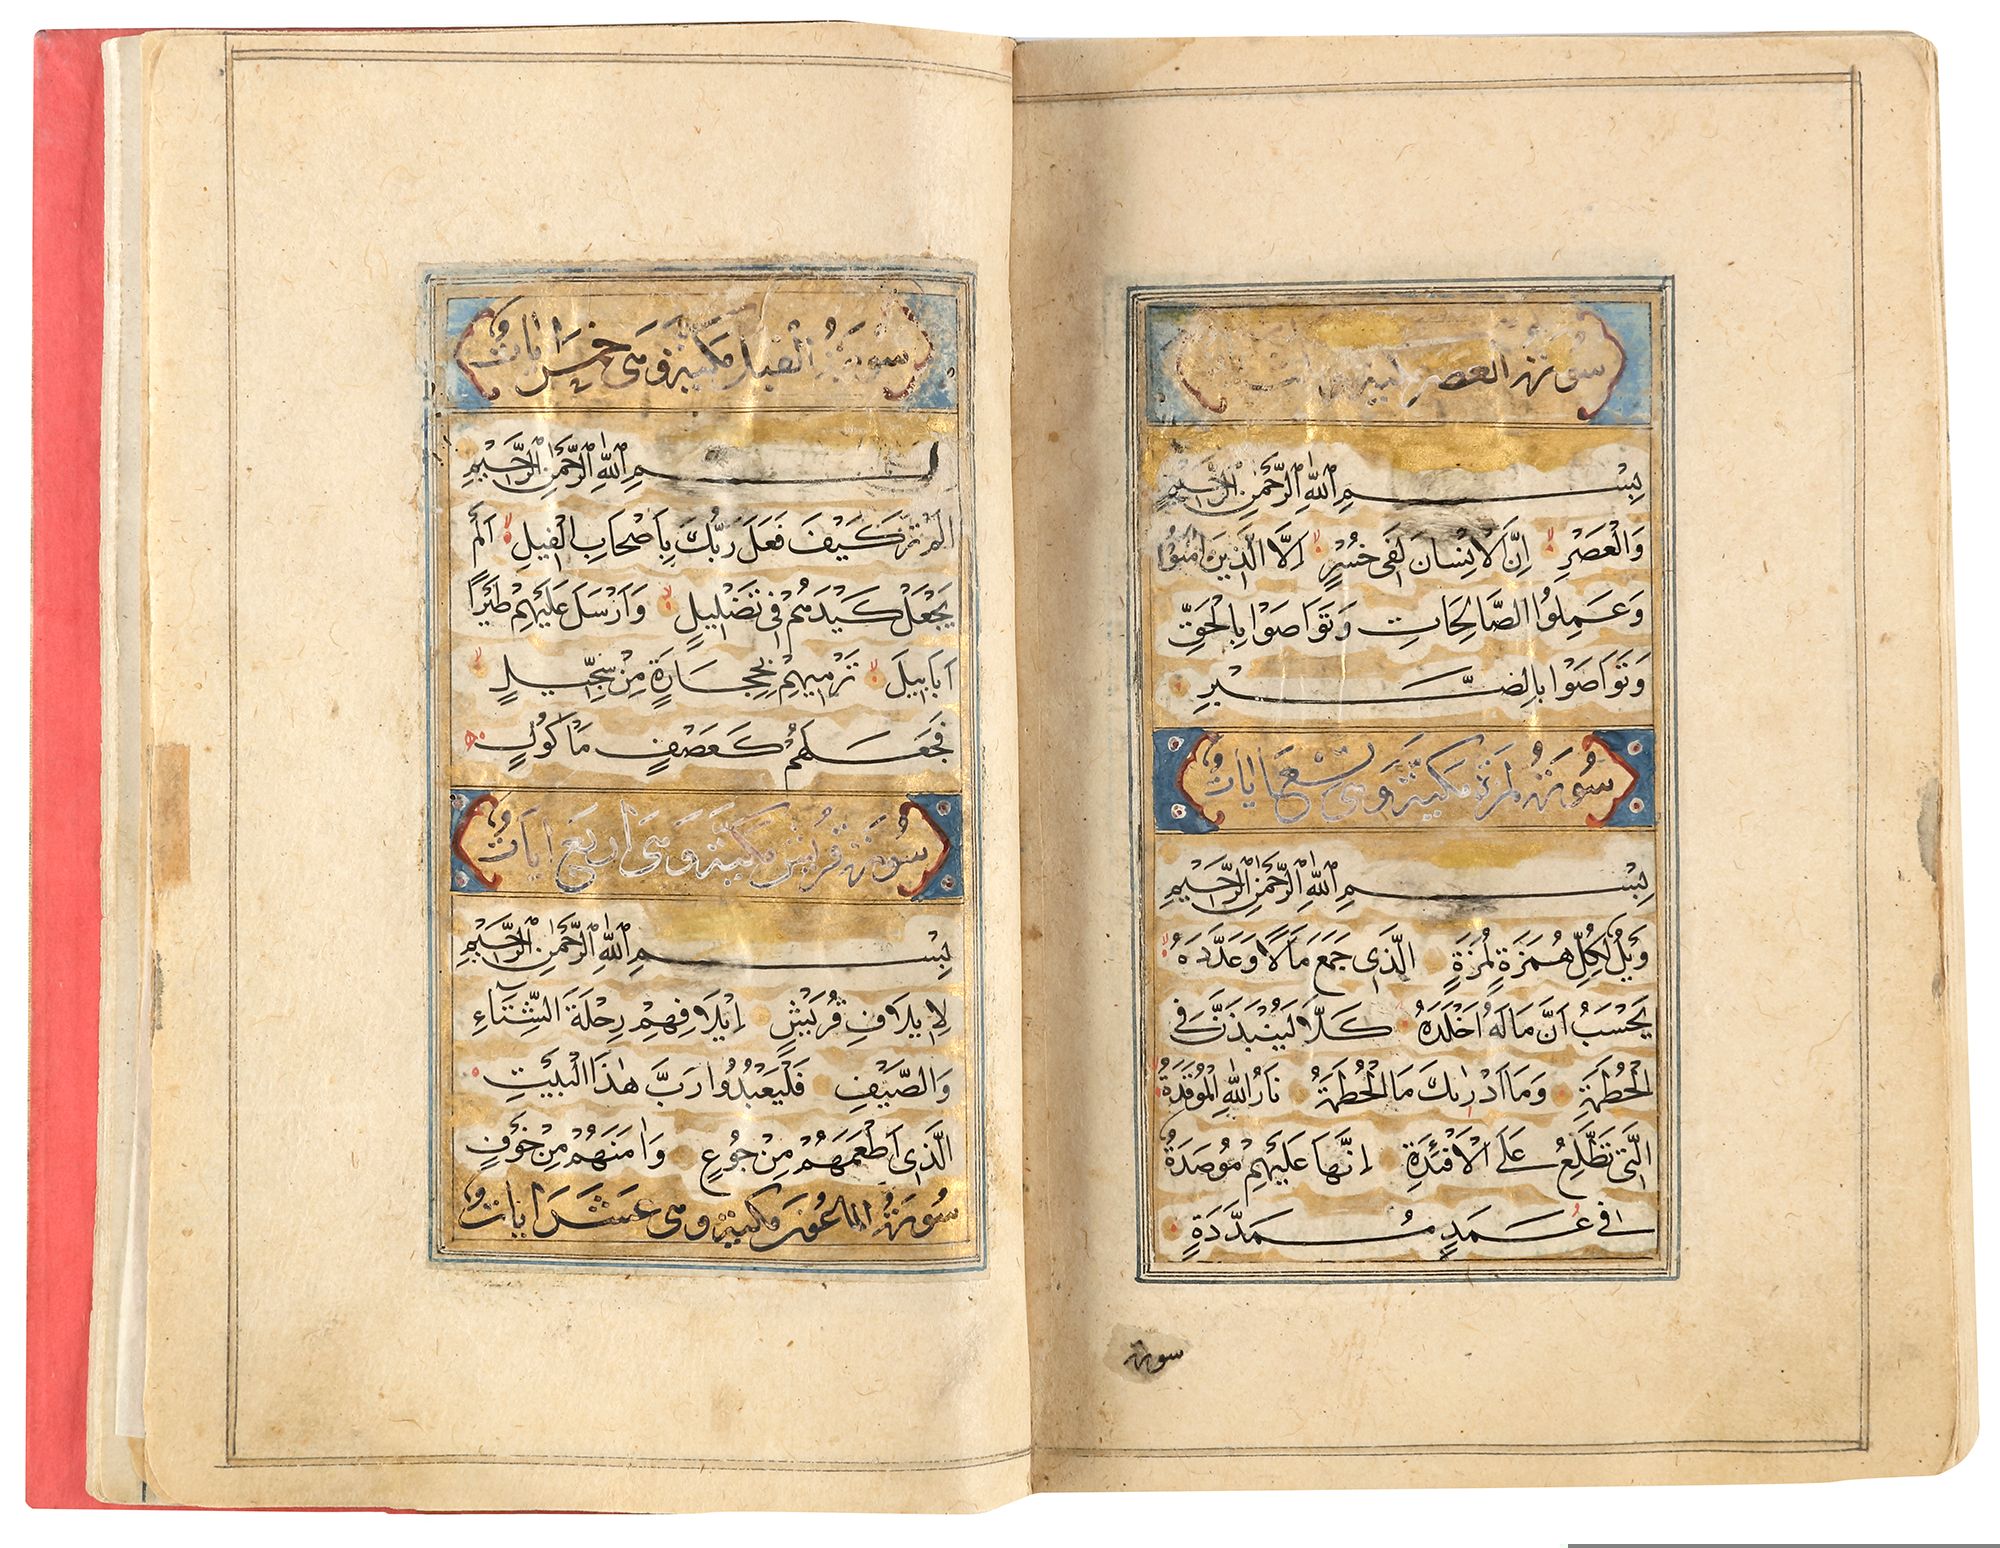 سورة العصر مكية
بِسْمِ اللّٰهِ الرَّحْمٰنِ الرَّحِيمِ
وَالْعَصْرِ اِنَّ الْاِنْسَانَ لَفِى خُسْرٍ اِلَّا الَّذِينَ اٰمَنُوا
وَعَمِلُوا الصَّالِحَاتِ وَتَوَاصَوْا بِالْحَقِّ
وَتَوَاصَوْا بِالصَّبْرِ
سُورَةُ لمزة مَكِّيَّةٌ وَهِىَ تِسْعُ اٰيَاتٍ
بِسْمِ اللّٰهِ الرَّحْمٰنِ الرَّحِيمِ
وَيْلٌ لِكُلِّ هُمَزَةٍ لُمَزَةٍ الَّذِى جَمَعَ مَالًا وَعَدَّدَهُ
يَحْسَبُ اَنَّ مَالَهُ اَخْلَدَهُ كَلَّا لَيُنْبَذَنَّ فِى
الْحُطَمَةِ وَمَا اَدْرٰىكَ مَا الْحُطَمَةُ نَارُ اللّٰهِ الْمُوقَدَةُ
الَّتِى تَطَّلِعُ عَلَى الْاَفْئِدَةِ اِنَّهَا عَلَيْهِمْ مُوصَدَةٌ
فِى عَمَدٍ مُمَدَّدَةٍ
سورة
سُورَةُ الْفِيلِ مَكِّيَّةٌ وَهِىَ خَمْسُ اٰيَاتٍ
بِسْمِ اللّٰهِ الرَّحْمٰنِ الرَّحِيمِ
اَلَمْ تَرَ كَيْفَ فَعَلَ رَبُّكَ بِاَصْحَابِ الْفِيلِ اَلَمْ
يَجْعَلْ كَيْدَهُمْ فِى تَضْلِيلٍ وَاَرْسَلَ عَلَيْهِمْ طَيْرًا
اَبَابِيلَ تَرْمِيهِمْ بِحِجَارَةٍ مِنْ سِجِّيلٍ
فَجَعَلَهُمْ كَعَصْفٍ مَاْكُولٍ
سُورَةُ قُرَيْشٍ مَكِّيَّةٌ وَهِىَ اَرْبَعُ اٰيَاتٍ
بِسْمِ اللّٰهِ الرَّحْمٰنِ الرَّحِيمِ
لِاِيلَافِ قُرَيْشٍ اِيلَافِهِمْ رِحْلَةَ الشِّتَاءِ
وَالصَّيْفِ فَلْيَعْبُدُوا رَبَّ هٰذَا الْبَيْتِ
الَّذِى اَطْعَمَهُمْ مِنْ جُوعٍ وَاٰمَنَهُمْ مِنْ خَوْفٍ
سُورَةُ الماعون مكية وهى عَشَرَ اٰيَاتٍ